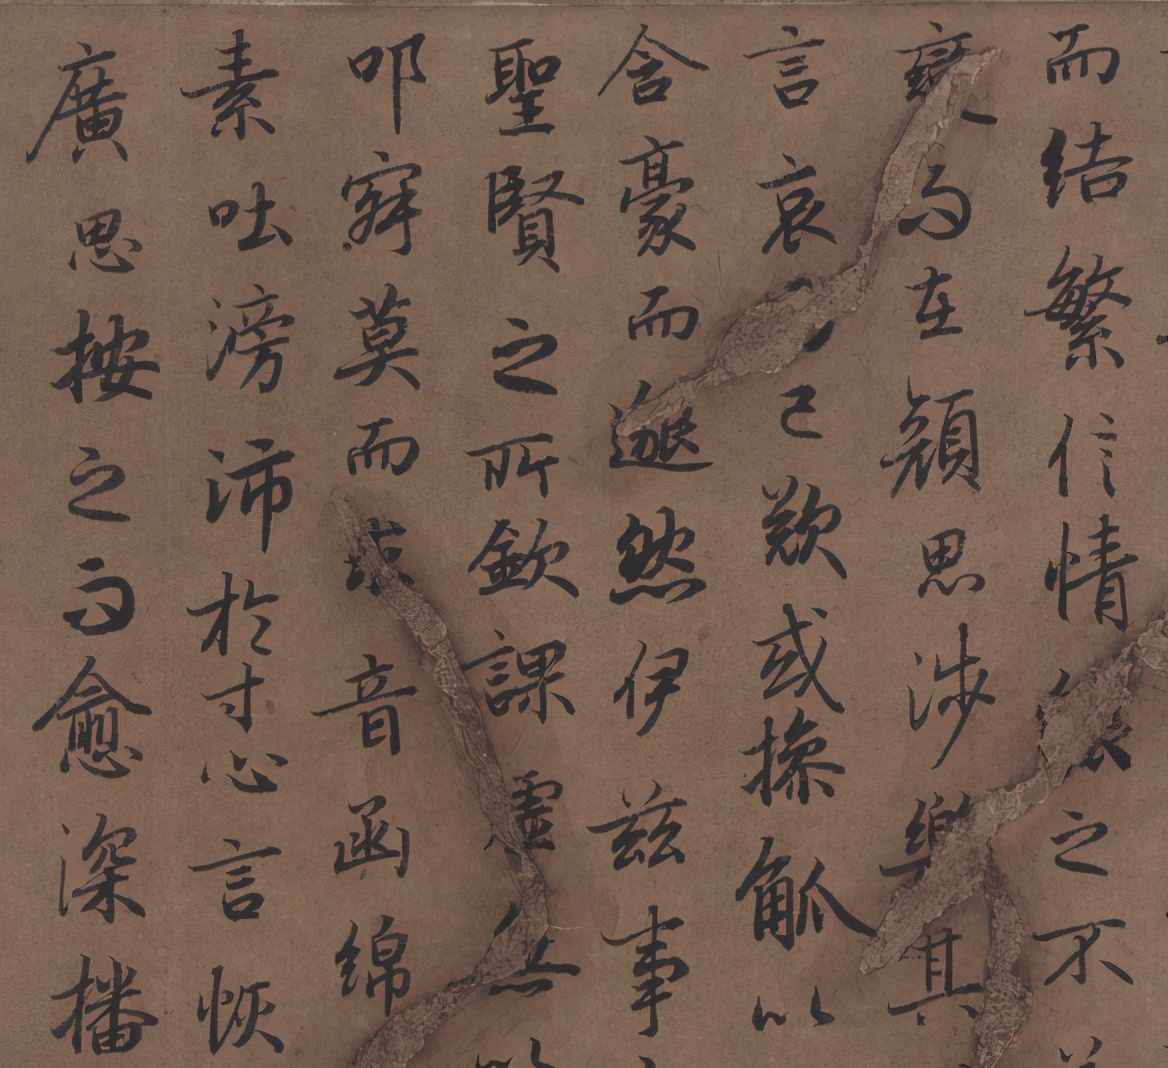 而結繁信情之不
變而在顏思涉樂其
言哀已歎或操觚以
含豪而邈然伊茲事
聖賢之所欽課虛無
叩寂莫而求音函綿
素吐滂沛於寸心言恢
廣思按之而愈深播